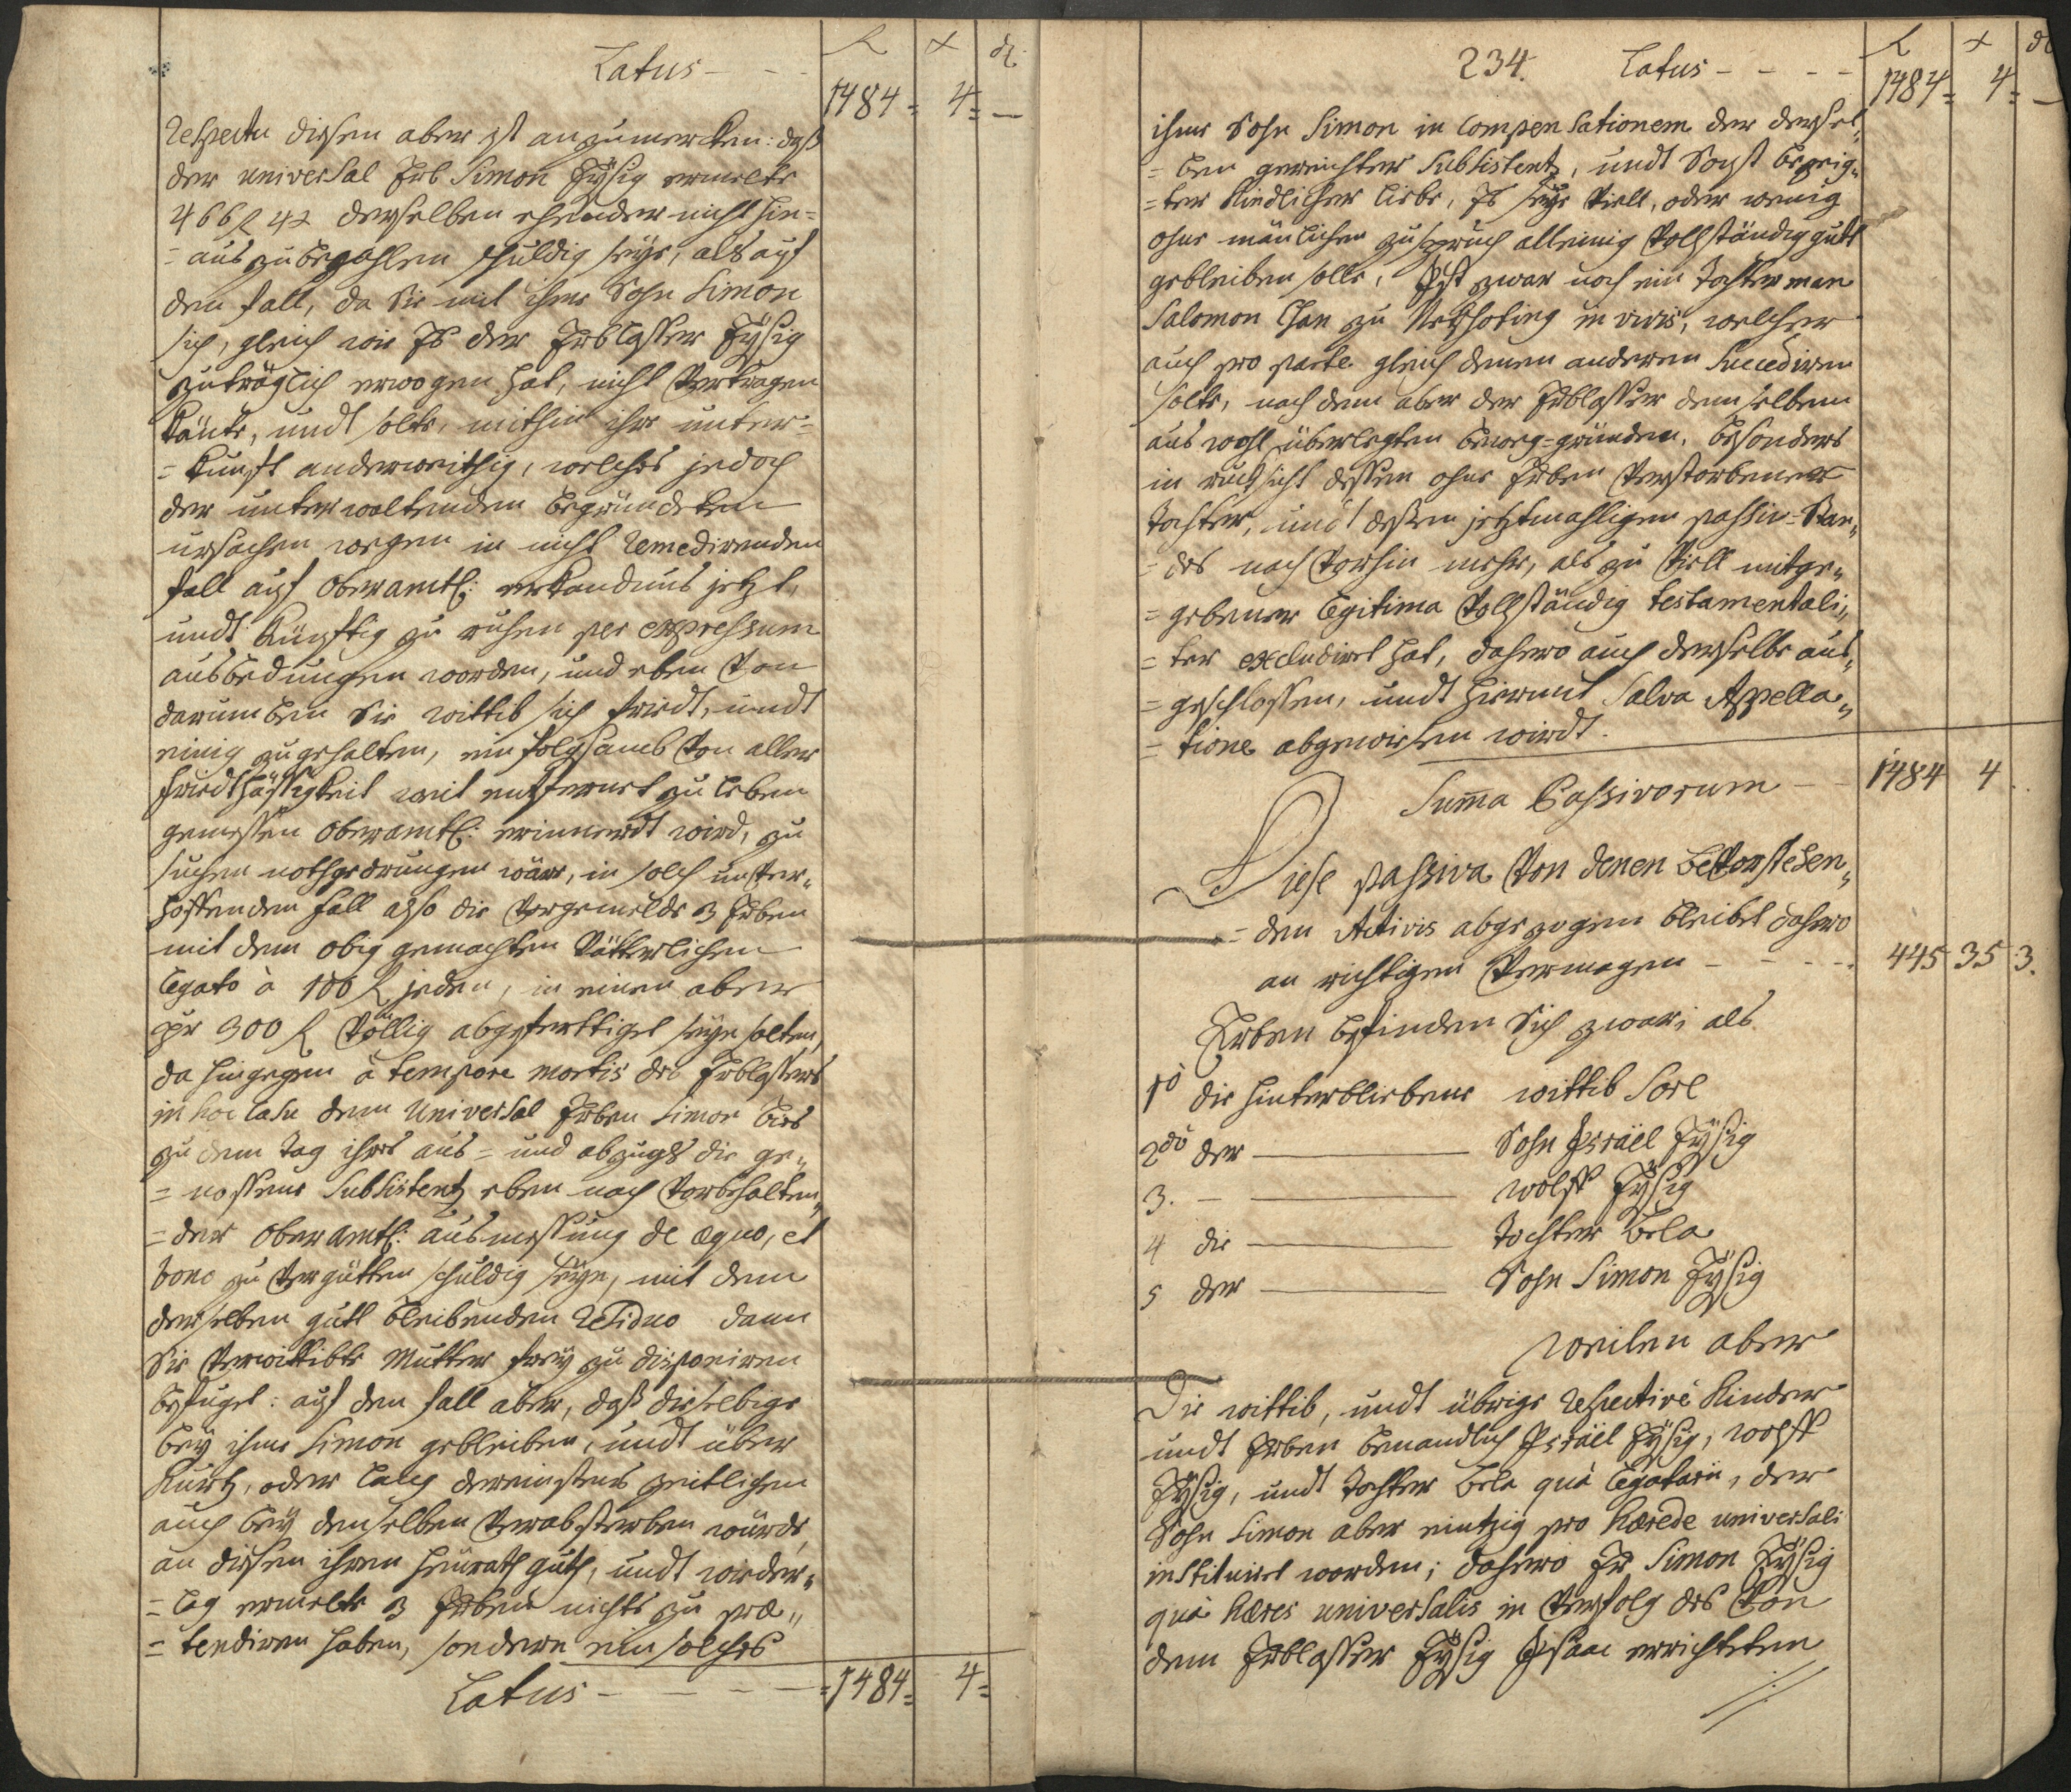 Latus - - -
f x d
1484 = 4 = —
Respectu dießen aber ist anzumercken: daß
der universal Erb Simon Eysig ermelte
466 f 4 x derselben ehender nicht hin=
=aus zu bezahlen schuldig seye, als auf
den fall, da Sie mit ihme Sohn Simon
sich, gleich wie Es der Erblaßer Eysig
zuträglich erwogen hat, nicht Vertragen
könte, undt solte, mithin ihr unter=
=kunft anderweithig, welches jedoch
der unterwaltenden begründeten
ursachen wegen in nicht Remedirenden
fall auf Oberamtl: erkandnus jetzt,
undt künftig zu ruhen per expressum
ausbedungen worden, und eben Von
darumben Sie wittib sich friedt, undt
einig zu gehalten, ein folgsamb Von aller
friedthäßigkeit weit entfernet zu leben
gemeßen Oberamtl: erinnerdt wird, zu
suchen nothgedrungen wäre, in solch unver„
hoffenden fall also die Vorgemelde 3 Erben
mit dem obig gemachten Vätterlichen
Legato à 100 f jeden, in einen aber
pr 300 f Völlig abgeferttiget seyn solten,
da hingegen à tempore mortis des Erblaßers
in hoc Casu dem Universal Erben Simon bies
zu dem tag ihres aus= und abzugs die ge„
=noßene Subsistentz eben nach Vorbehalten„
=der Oberamtl: ausmeßung de aequo, et
bono zu Vergütten schuldig seye, mit dem
derselben gutt bleibenden Residuo dann
Sie Verwittibte Mutter frey zu disponiren
befuget: auf den fall aber, daß dieselbige
bey ihme Simon gebleiben, undt über
kurtz, oder lang dereinstens zeitlichen
auch bey denselben Verabsterben würde,
an dießen ihren heurath guth, undt wieder„
=lag ermelte 3 Erben nichts zu prae„
=tendiren haben, sondern ein solches
Latus - - - - =1484= 4=
234. Latus - - - -
f x d
1484 = 4 = —
ihme Sohn Simon in Compensationem der dersel„
=ben gereichter Subsistentz, undt Sonst bezeig„
=ter Kindlicher liebe, Es seye Viell, oder wenig
ohne mänlichen zuspruch alleinig Vollständig gutt
gebleiben solle, Ist zwar noch ein Tochterman
Salomon Chan zu in vivis, welcher
auch pro parte gleich denen anderen Succediren
solte, nach dem aber der Erblaßer demselben
aus wohl überlegten beweg=gründen, besonders
in rucksicht deßen ohne Erben Verstorbener
Tochter, undt deßen jetztmahligen passiv=Stan„
=des nach Vorhin mehr, als zu Viell mitge„
=gebener Legitima Vollständig testamentali„
=ter excludiret hat, dahero auch derselbe aus„
=geschlossen, undt hiermit Salva Appella„
=tione abgewiesen wirdt.
Suma Passivorum - - 1484 4 . .
Diese passiva Von denen beVorstehen„
=den Activis abgezogen bleibet dahero
an richtigen Vermogen - - - - . 445 35 3.
Erben befinden Sich zwar; als
1o die hinterbliebene wittib Sorl
2do der ——— Sohn Israel Eysig
3. — ——— wolff Eysig
4 die ——— Tochter Bela
5 der ——— Sohn Simon Eysig
weilen aber
Die wittib, undt übrige Respectivè Kinder
undt Erben benandlich Israel Eysig, wolff
Eysig, undt Tochter Bela quà Legatarii, der
Sohn Simon aber eintzig pro haerede universali
instituiret worden; dahero Er Simon Eysig
quà haeres universalis in Verfolg des Von
dem Erblaßer Eysig Isaac errichteten